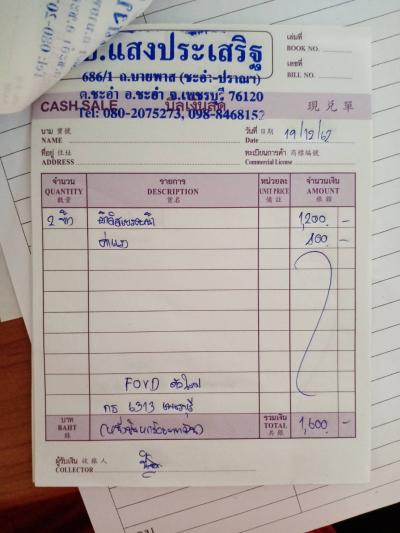 .แสงประเสริฐ
686/1 ถ.บายพาส (ชะอำ-ปราณฯ)
ต.ชะอำ อ.ชะอำ จ.เพชรบุรี 76120
Tel: 080-2075273, 098-8468152
เล่มที่
BOOK NO.
เลขที่
BILL NO.
CASH SALE บิลเงินสด 現兌單
นาม 寶號
NAME
วันที่ 日期 19/12/62
Date
ที่อยู่ 住址
ADDRESS
ทะเบียนการค้า 商標編號
Commercial License
จำนวน รายการ หน่วยละ จำนวนเงิน
QUANTITY DESCRIPTION UNIT PRICE AMOUNT
數量 貨名 備註 銀額
2 1,200 -
ค่าแรง 400 -
FOVD ตัวใหม่
กธ 6313 เพชรบุรี
บาท รวมเงิน
BAHT TOTAL 1,600 -
銖 共銀
(หนึ่งพันหกร้อยบาทถ้วน)
ผู้รับเงิน 收銀人
COLLECTOR